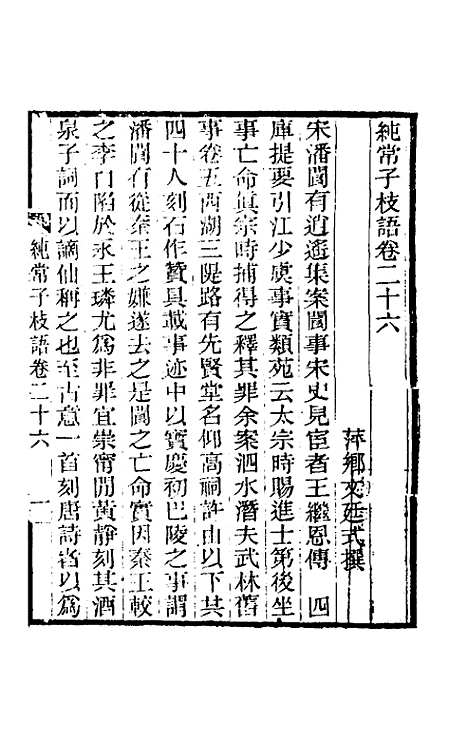 純常子枝語卷二十六
萍鄉文廷式撰
宋潘閬有逍遙集案閬事宋史見宦者王繼恩傳　四
庫提要引江少虞事實類苑云太宗時賜進士第後坐
事亡命眞宗時捕得之釋其罪余案泗水潛夫武林舊
事卷五西湖三隄路有先賢堂名仰高祠許由以下共
四十人刻石作贊具載事迹中以寶慶初巴陵之事謂
潘閬有從秦王之嫌遂去之是閬之亡命實因秦王較
之李白陷於永王璘尤爲非罪宜崇甯閒黃靜刻其酒
泉子詞而以謫仙稱之也至古意一首刻唐詩者以爲
純常子枝語卷二十六
一